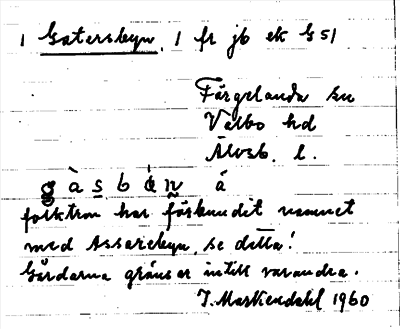 1 Gatersbyn, 1 fr jb ek G 51
Färgelanda sn
Valbo hd
Älvsb. l.
g à s b ó n å
folktron har förbundit namnet
med Assarebyn, se detta!
Gårdarna gränsar intill varandra.
J. Markendahl 1960